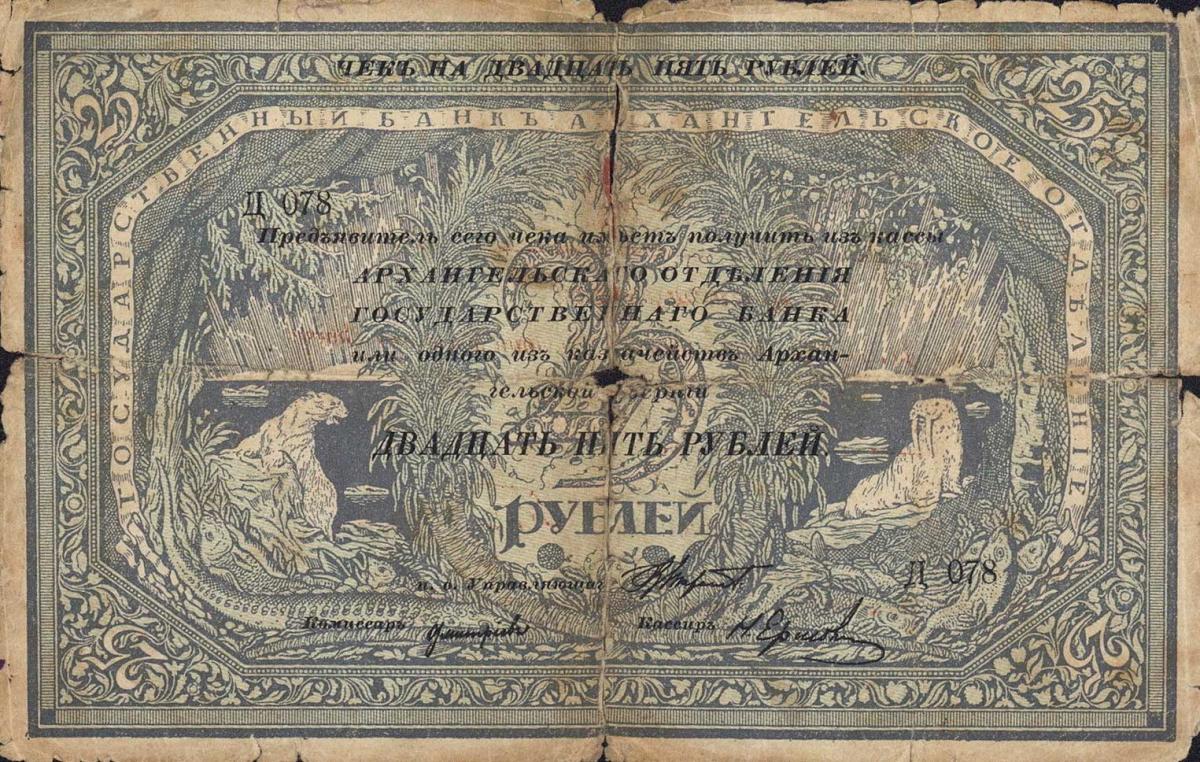 ЧЕКЪ НА ДВАДЦАТЬ ПЯТЬ РУБЛЕЙ.
25
25
ГОСУДАРСТВЕННЫЙ БАНКЪ АРХАНГЕЛЬСКОЕ ОТДѢЛЕНІЕ
Д 078
Предъявитель сего чека имѣетъ получить изъ кассы
АРХАНГЕЛЬСКАГО ОТДѢЛЕНІЯ
ГОСУДАРСТВЕННАГО БАНКА
или одного изъ казначействъ Архан-
гельской губерніи
ДВАДЦАТЬ ПЯТЬ РУБЛЕЙ.
25
РУБЛЕЙ
и. о. Управляющаг
Д 078
Комиссаръ
Кассиръ
25
25